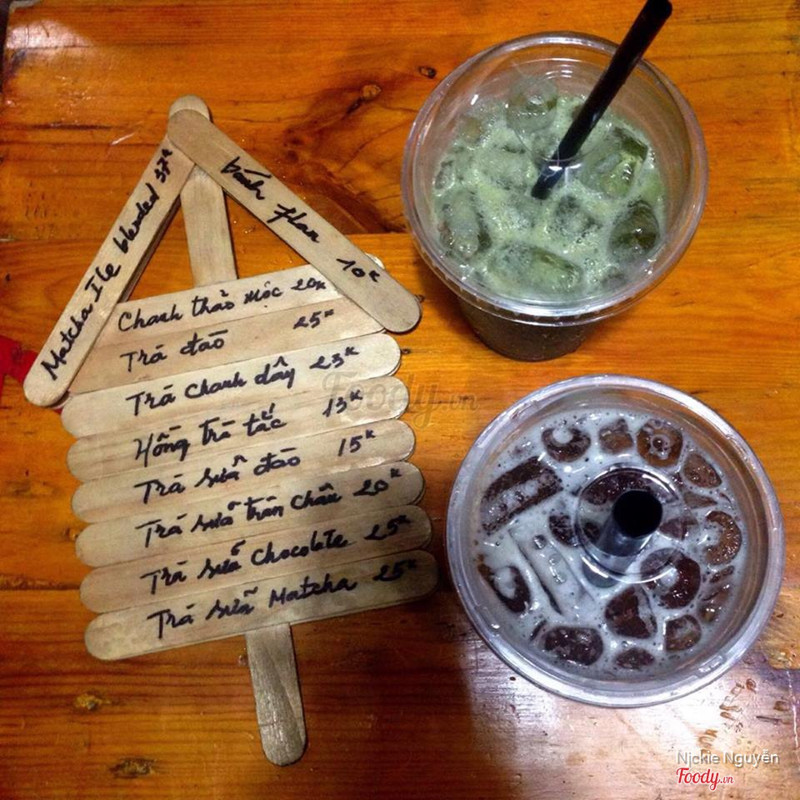 Matcha Ice blended 37k
bánh flan 10k
Chanh thảo mộc 20k
Trà đào 25k
Trà chanh dây 23k
Hồng trà tắc 13k
Trà sữa đào 15k
Trà sữa trân châu 20k
Trà sữa Chocolate 25k
Trà sữa Matcha 25k
Foody.vn
Nickie Nguyễn
Foody.vn